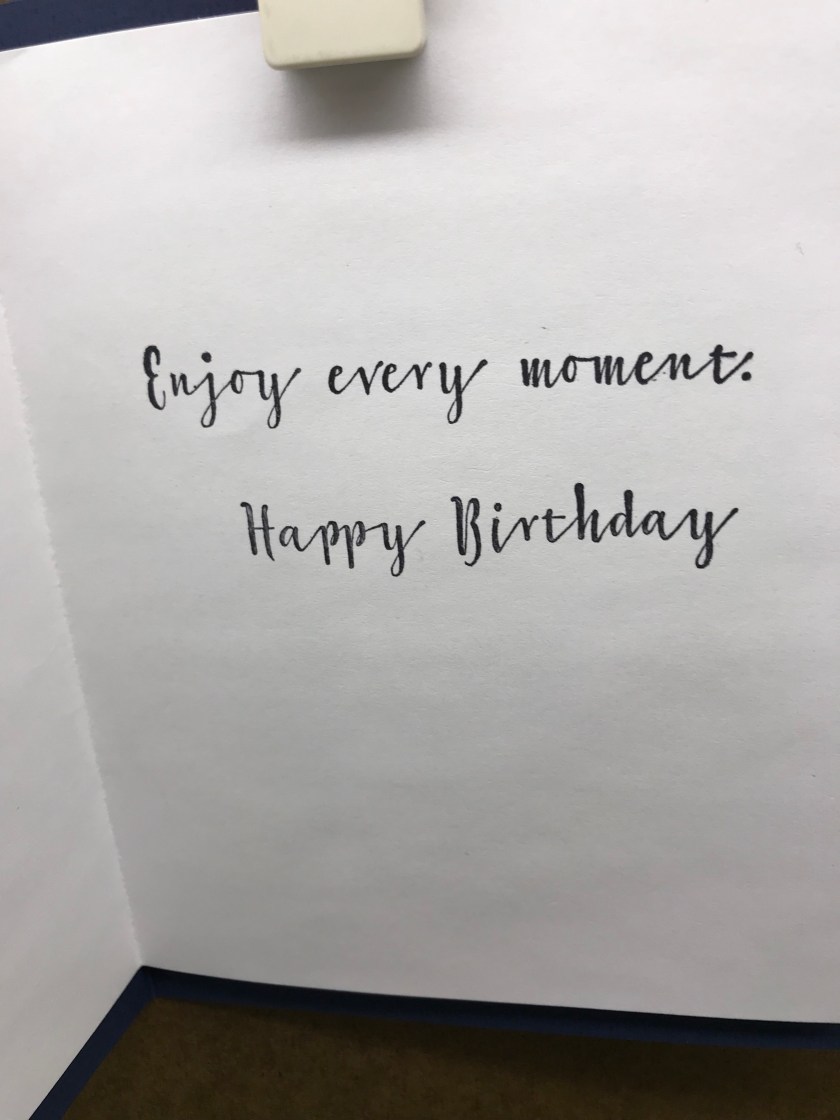 Enjoy every moment.
Happy Birthday